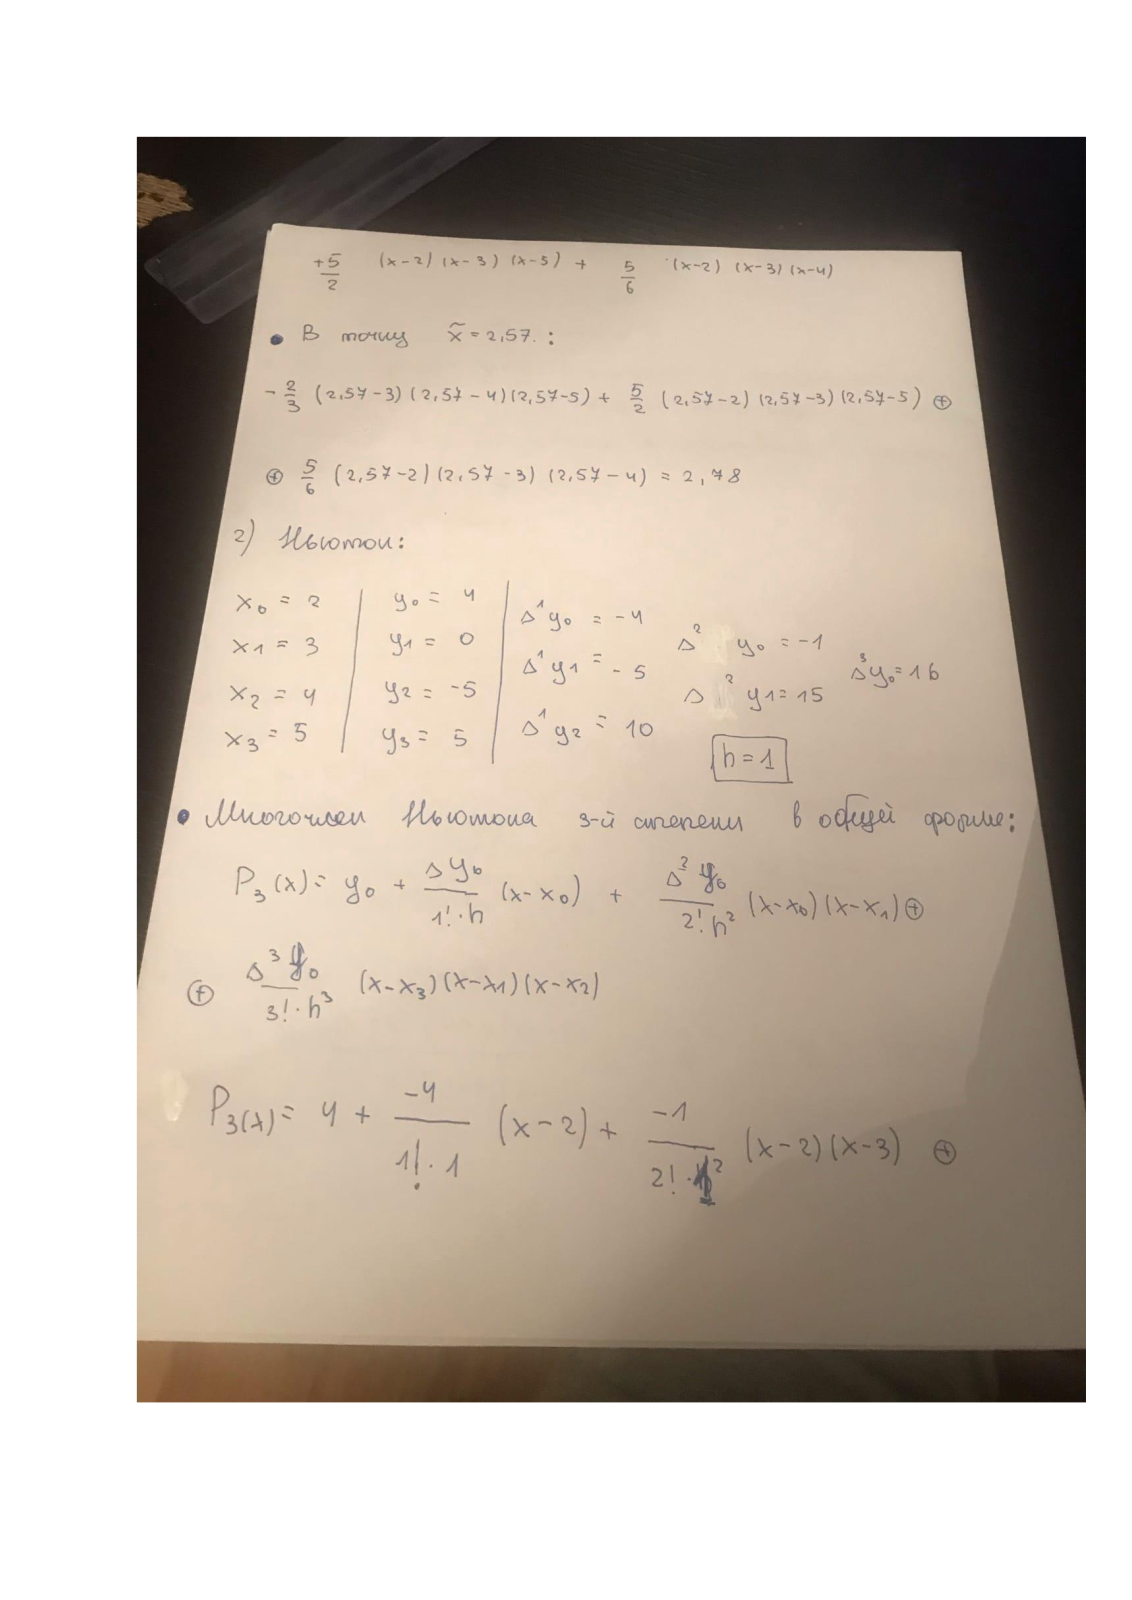 +5/2 (x-2) (x-3) (x-5) + 5/6 (x-2) (x-3) (x-4)
• В точку x̃ = 2,57. :
- 2/3 (2,57-3) (2,57-4) (2,57-5) + 5/2 (2,57-2) (2,57-3) (2,57-5) ⊕
⊕ 5/6 (2,57-2) (2,57-3) (2,57-4) = 2,78
2) Ньютон:
x₀ = 2 | y₀ = 4 | Δ¹y₀ = -4 Δ² y₀ = -1 Δ³y₀ = 16
x₁ = 3 | y₁ = 0 | Δ¹y₁ = -5 Δ² y₁ = 15
x₂ = 4 | y₂ = -5 | Δ¹y₂ = 10
x₃ = 5 | y₃ = 5 | h = 1
• Многочлен Ньютона 3-й степени в общей форме:
P₃(x) = y₀ + Δy₀/(1!·h) (x-x₀) + Δ²y₀/(2!h²) (x-x₀)(x-x₁) ⊕
⊕ Δ³y₀/(3!·h³) (x-x₃)(x-x₁)(x-x₂)
P₃(x) = 4 + -4/(1!·1) (x-2) + -1/(2!·1²) (x-2)(x-3) ⊕